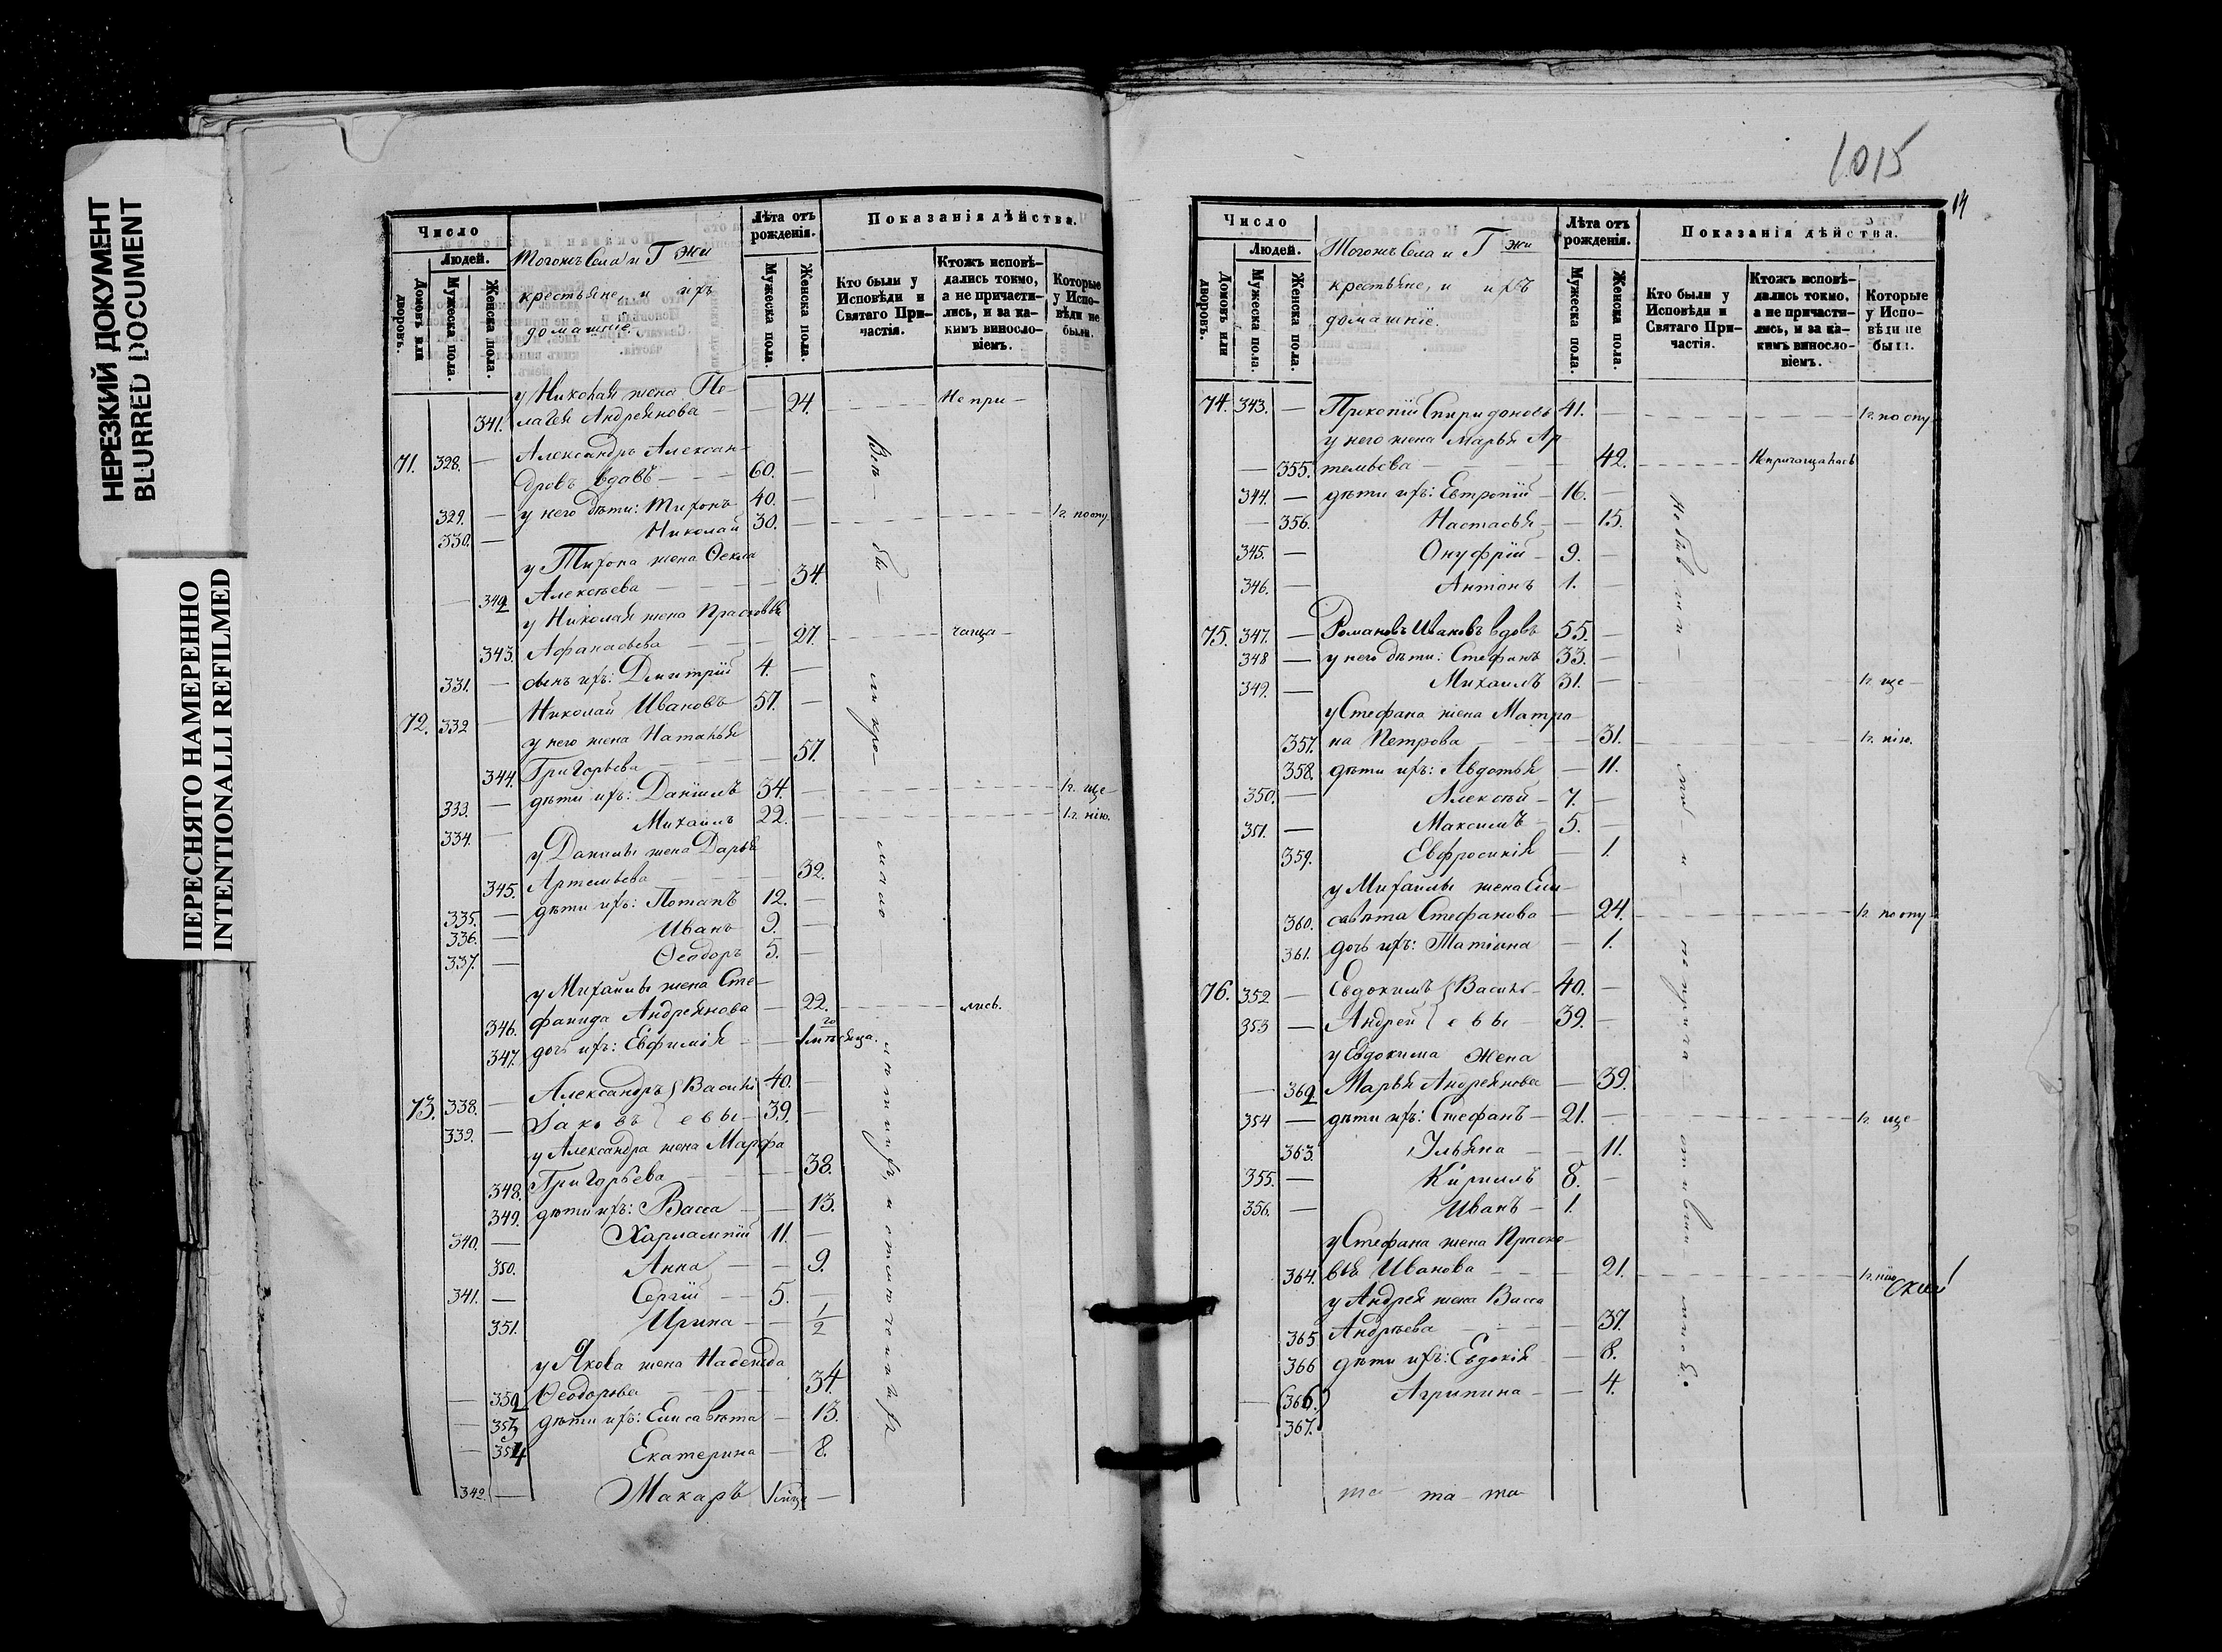 НЕРЕЗКИЙ ДОКУМЕНТ
BLURRED DOCUMENT
ПЕРЕСНЯТО НАМЕРЕННО
INTENTIONALLI REFILMED
Число
Людей.
Домовъ или дворовъ.
Мужеска пола.
Женска пола.
Тогожъ села и Г жи
крестьяне, и ихъ
домашніе
Лѣта отъ рожденія.
Мужеска пола.
Женска пола.
Показанія дѣйства.
Кто были у Исповѣди и Святаго При-частія.
Ктожъ исповѣ-дались токмо, а не причасти-лись, и за ка-кимъ винослов-іемъ.
Которые у Испо-вѣди не были.
у Николая жена Пе-
341. лагея Андреянова — — 24. Непри—
71. 328. — Александръ Алексан-
дровъ вдовъ — 60. —
329. — у него дѣти: Тихонъ 40. —
330. — Николай 30. — 1 г. по опу
у Тихона жена Ѳекла
— 342 Алексѣева — 34.
у Николая жена Прасковья
343. Афанасьева — 27. чаща—
331. — сынъ ихъ: Димитрій 4. —
72. 332 — Николай Ивановъ 57. —
у него жена Наталья
344. Григорьева — 57.
333. — дѣти ихъ: Даніилъ 34. — 1 г. ще—
334. — Михаилъ 22. — 1 г. нію.
у Даниилы жена Дарья
345. Артемьева — 32.
335. — дѣти ихъ: Потапъ 12. —
336. — Иванъ 9. —
337. — Ѳеодоръ 5. —
у Михаилы жена Сте-
346. фанида Андреянова — 22. лись.
347. дочь ихъ: Евфимія — 1 мѣсяца.
73. 338. — Александръ } Василь 40. —
339. — Іаковъ } евы — 39. —
у Александра жена Марфа
348. Григорьева — 38.
349. дѣти ихъ: Васса — 13.
340. — Харлампій 11. —
350. Анна — — 9.
341. — Сергій — 5. —
351. Ирина — — 1/2
у Якова жена Надежда
— 352 Ѳеодорова — 34.
— 353 дѣти ихъ: Елисавета — 13.
— 354 Екатерина — 8.
342. — Макаръ 1 мца —
1015
14
Число
Людей.
Домовъ или дворовъ.
Мужеска пола.
Женска пола.
Тогожъ села и Г жи
крестьяне, и ихъ
домашніе.
Лѣта отъ рожденія.
Мужеска пола.
Женска пола.
Показанія дѣйства.
Кто были у Исповѣди и Святаго При-частія.
Ктожъ исповѣ-дались токмо, а не причасти-лись, и за ка-кимъ винослов-іемъ.
Которые у Испо-вѣди не были.
74. 343. — Прокопій Спиридоновъ 41. — 1 г. по опу
у него жена Марья Ар-
— 355. темьева — 42. Непричащалась
344. — дѣти ихъ: Евтропій — 16. —
— 356. Настасья — — 15.
345. — Онуфрій — 9. —
346. — Антонъ 1. —
75. 347. — Романъ Ивановъ вдовъ 55. —
348 — у него дѣти: Стефанъ 33. —
349. — Михаилъ 31. — 1 г. ще—
у Стефана жена Матро-
357. на Петрова — 31. 1 г. нію.
358. дѣти ихъ: Авдотья — 11.
350. — Алексѣй — 7. —
351. — Максимъ — 5. —
359. Евфросинія — 1.
у Михаилы жена Ели-
360. савѣта Стефанова — 24. 1 г. по опу
361. дочь ихъ: Татіана — 1.
76. 352 — Евдокимъ } Василь— 40. —
353 — Андрей } евы 39. —
у Евдокима жена
— 362 Марья Андреянова — 39.
354 — дѣти ихъ: Стефанъ — 21. — 1 г. ще—
363. Ульяна — — 11.
355. — Кирилъ 8. —
356. — Иванъ — 1.
у Стефана жена Праско-
364. вья Иванова — 21. 1 г. нію
у Андрея жена Васса
365 Андрѣева — 37.
366 дѣти ихъ: Евдокія — 8.
— (366.) Агрипина — — 4.
367.
та — та — та